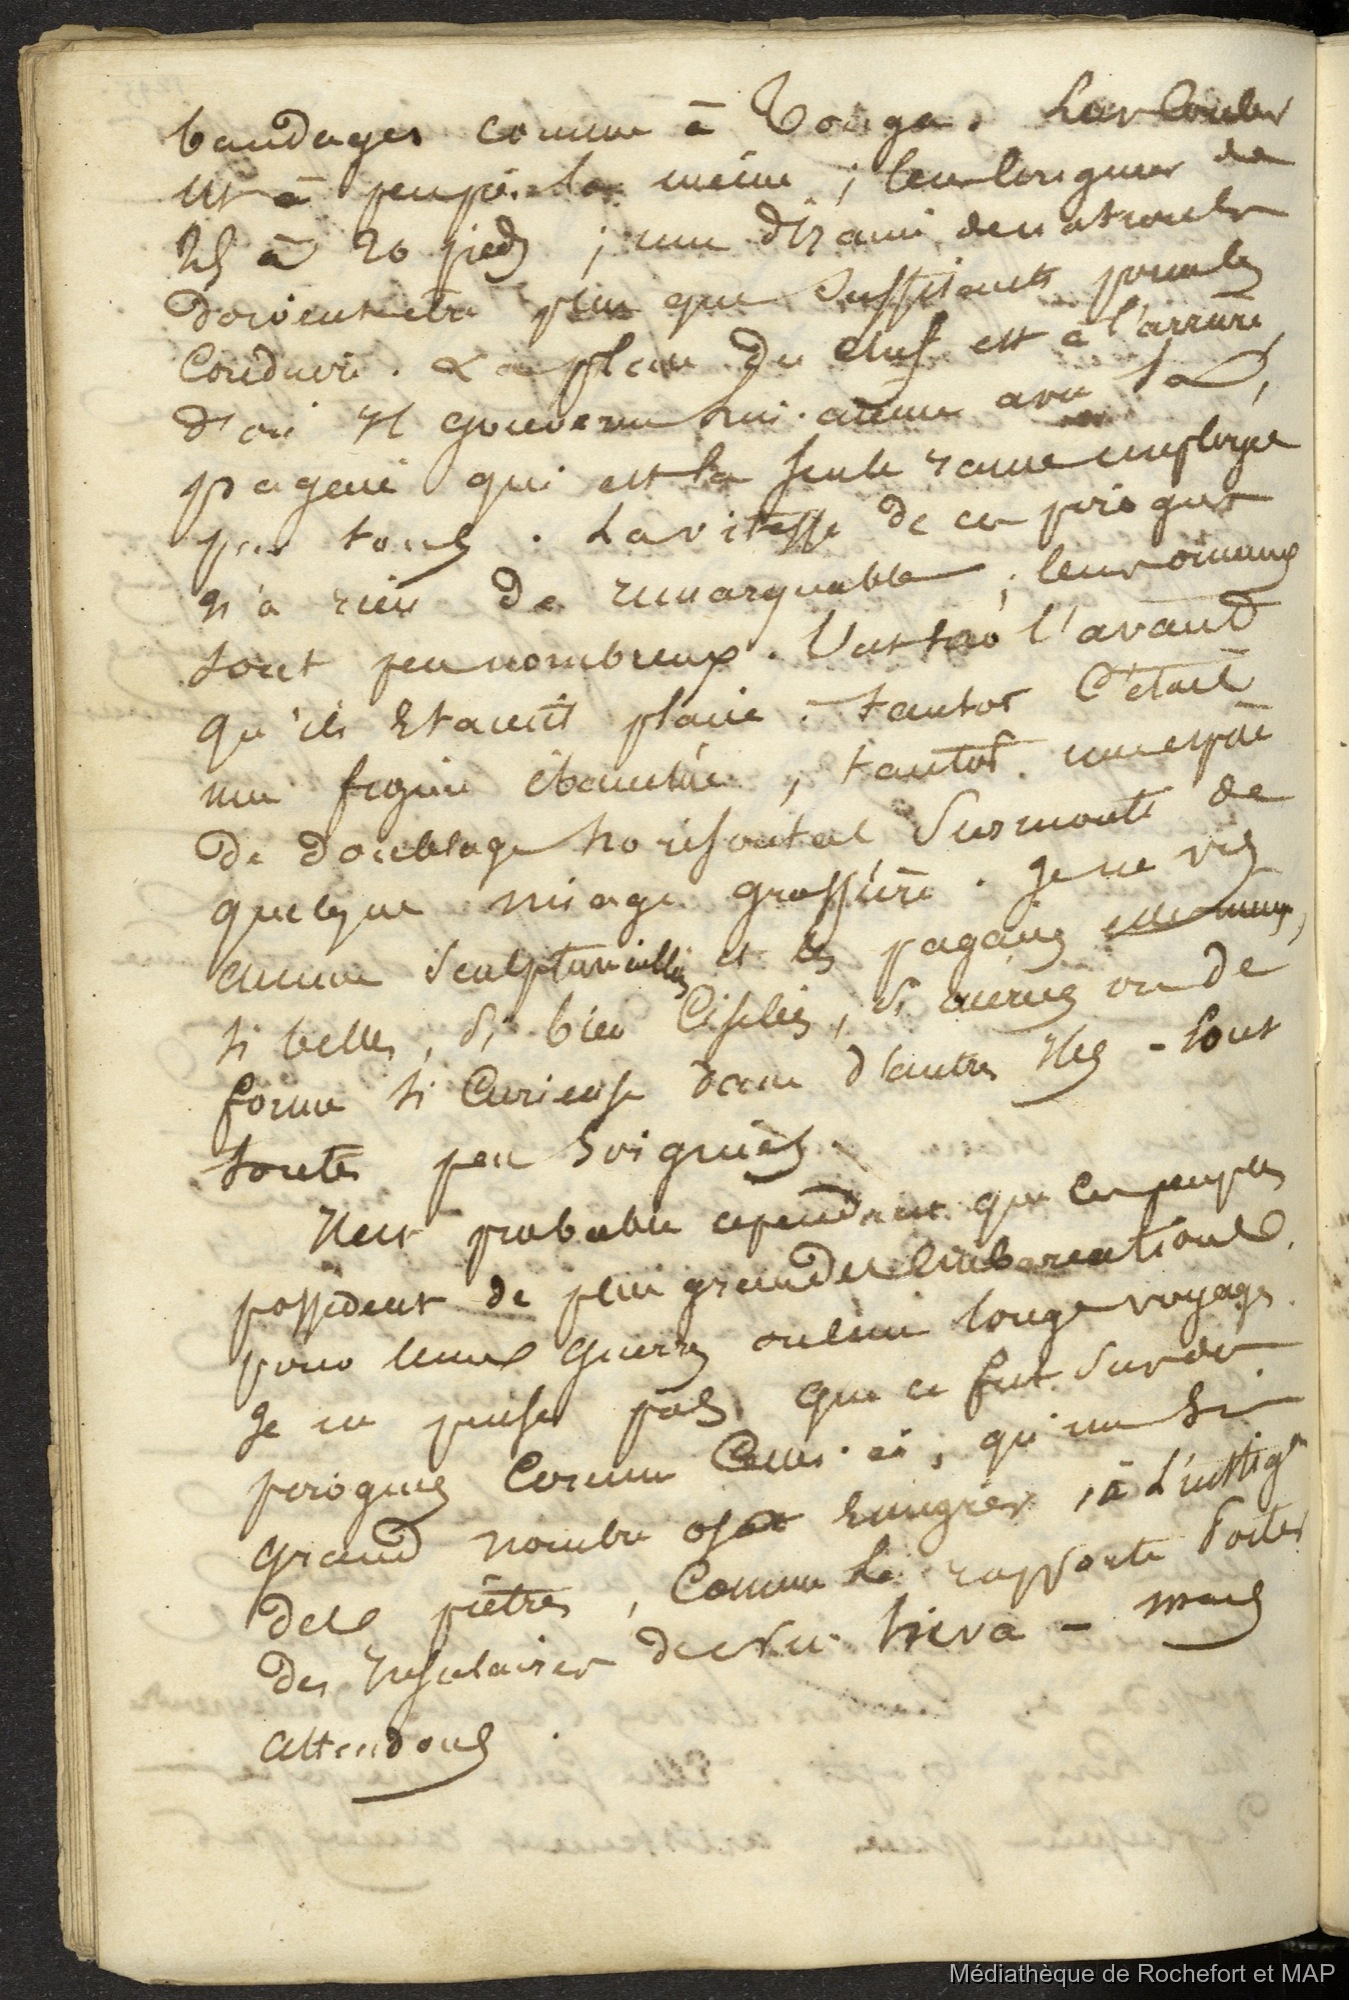 bandages comme à Tonga. Leur
est à peuprès la même ; leur longueur de
15 à 20 pieds ; une dizaine de naturels
doivent etre plus que suffisants pour les
Conduire. La place du chef est à l'arrière
d'où Il gouverne lui-même avec sa
pagaie qui est la seule rame employée
par tous. La vitesse de ces pirogues
n'a rien de remarquable ; leurs ornemens
sont peu nombreux. C'est sur l'avant
qu'ils Etaient placés. tantot C'était
une figure ébauchée, tantot une espèce
de doublage horisontal Surmonté de
quelque image grossière. Je ne vis
aucune Sculpture et les pagaies
si belles, Si bien Ciselées, Si ou de
forme si Curieuse dans d'autres Iles - Sont
toutes peu Soignées.
Il est probable cependant que ces peuples
possèdent de plus grandes Embarcations
pour leurs guerres ou leurs longs voyages.
Je ne pense pas que ce fut Sur des
pirogues Comme Celles-ci, qu'un Si
grand nombre osat Emigrer, à L'instigon
des prêtres, Comme Le rapporte Porter
des Insulaires de Nu-hiva - mais
attendons.
Médiathèque de Rochefort et MAP